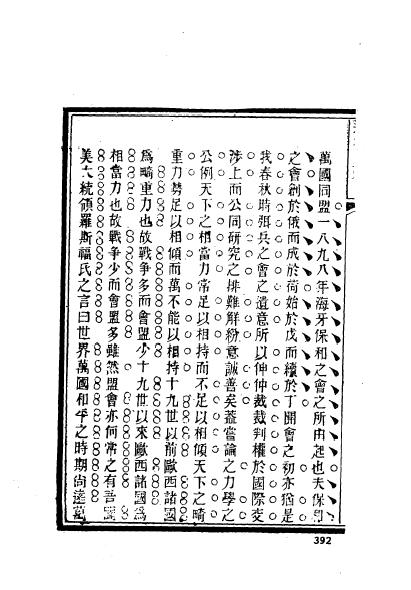 萬國同盟一八九八年海牙保和之會之所由起也夫保和
之會創於俄而成於荷始於戊而續於丁開會之初亦猶是
我春秋時弭兵之會之遺意所以伸仲裁裁判權於國際交
涉上而公同研究之排難解紛意誠善矣蓋嘗論之力學之
公例天下之相當力常足以相持而不足以相傾天下之畸
重力勢足以相傾而萬不能以相持十九世以前歐西諸國
爲畸重力也故戰爭多而會盟少十九世以來歐西諸國爲
相當力也故戰爭少而會盟多雖然盟會亦何常之有吾聞
美大統領羅斯福氏之言曰世界萬國和平之時期尚遠萬
392